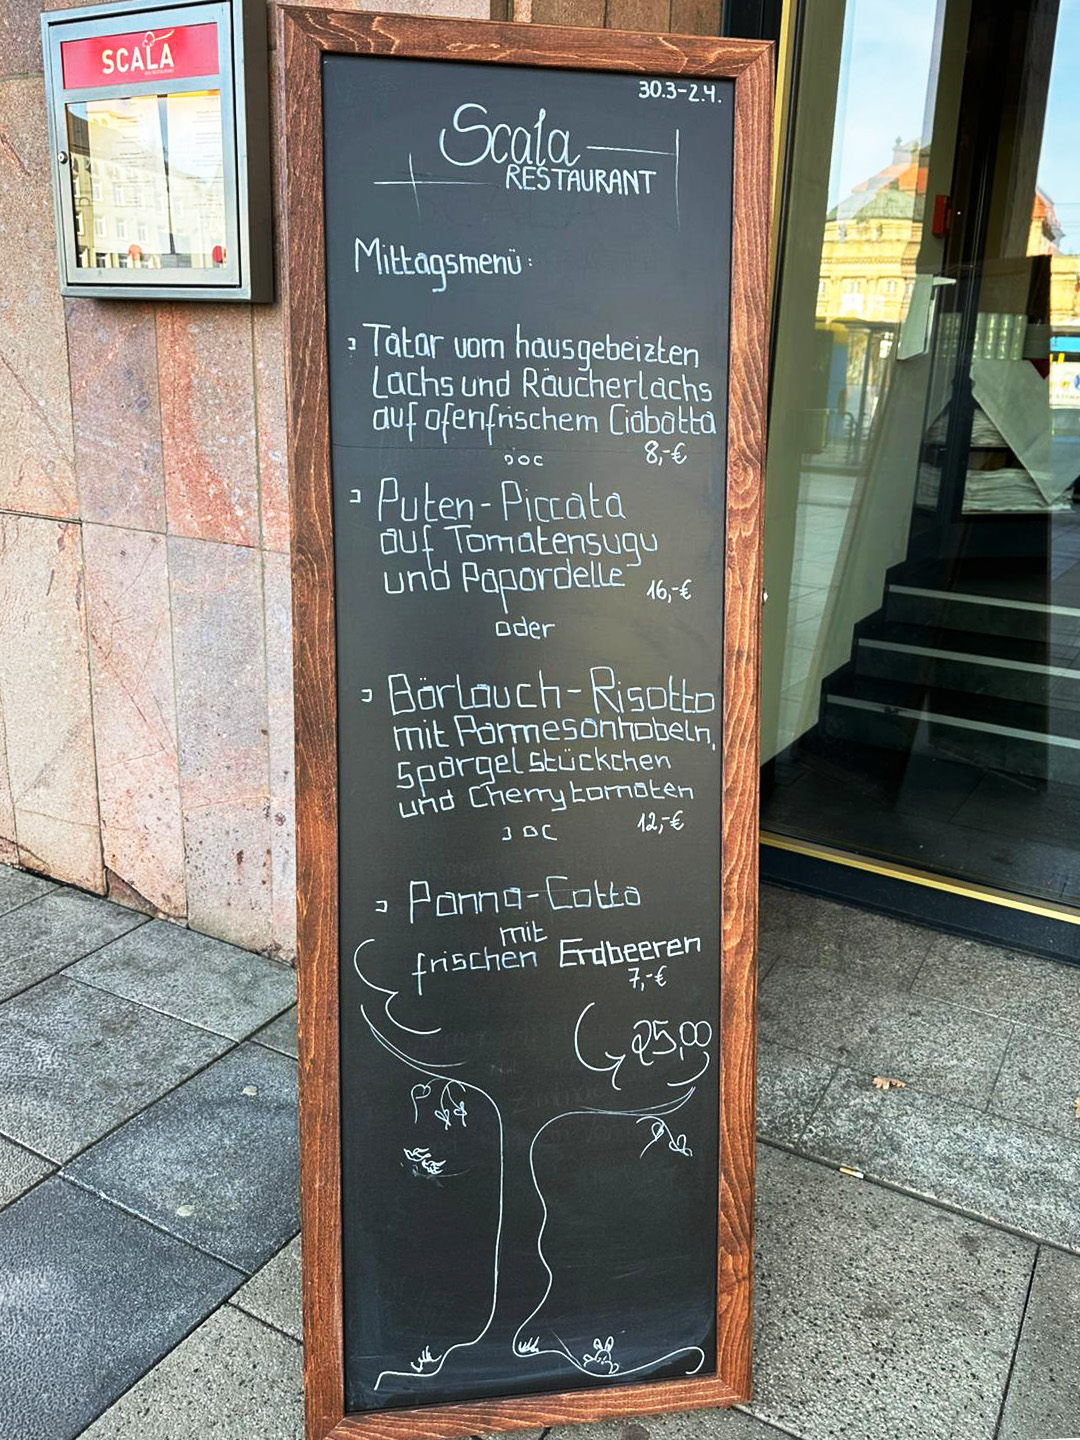 SCALA
30.3-2.4.
Scala
RESTAURANT
Mittagsmenü:
Tatar vom hausgebeizten
Lachs und Räucherlachs
auf ofenfrischem Ciabatta
8,-€
Puten-Piccata
auf Tomatensugu
und Papardelle
16,-€
oder
Bärlauch-Risotto
mit Parmesanhobeln,
Spargelstückchen
und Cherrytomaten
12,-€
Panna-Cotta
mit
frischen Erdbeeren
7,-€
25,00